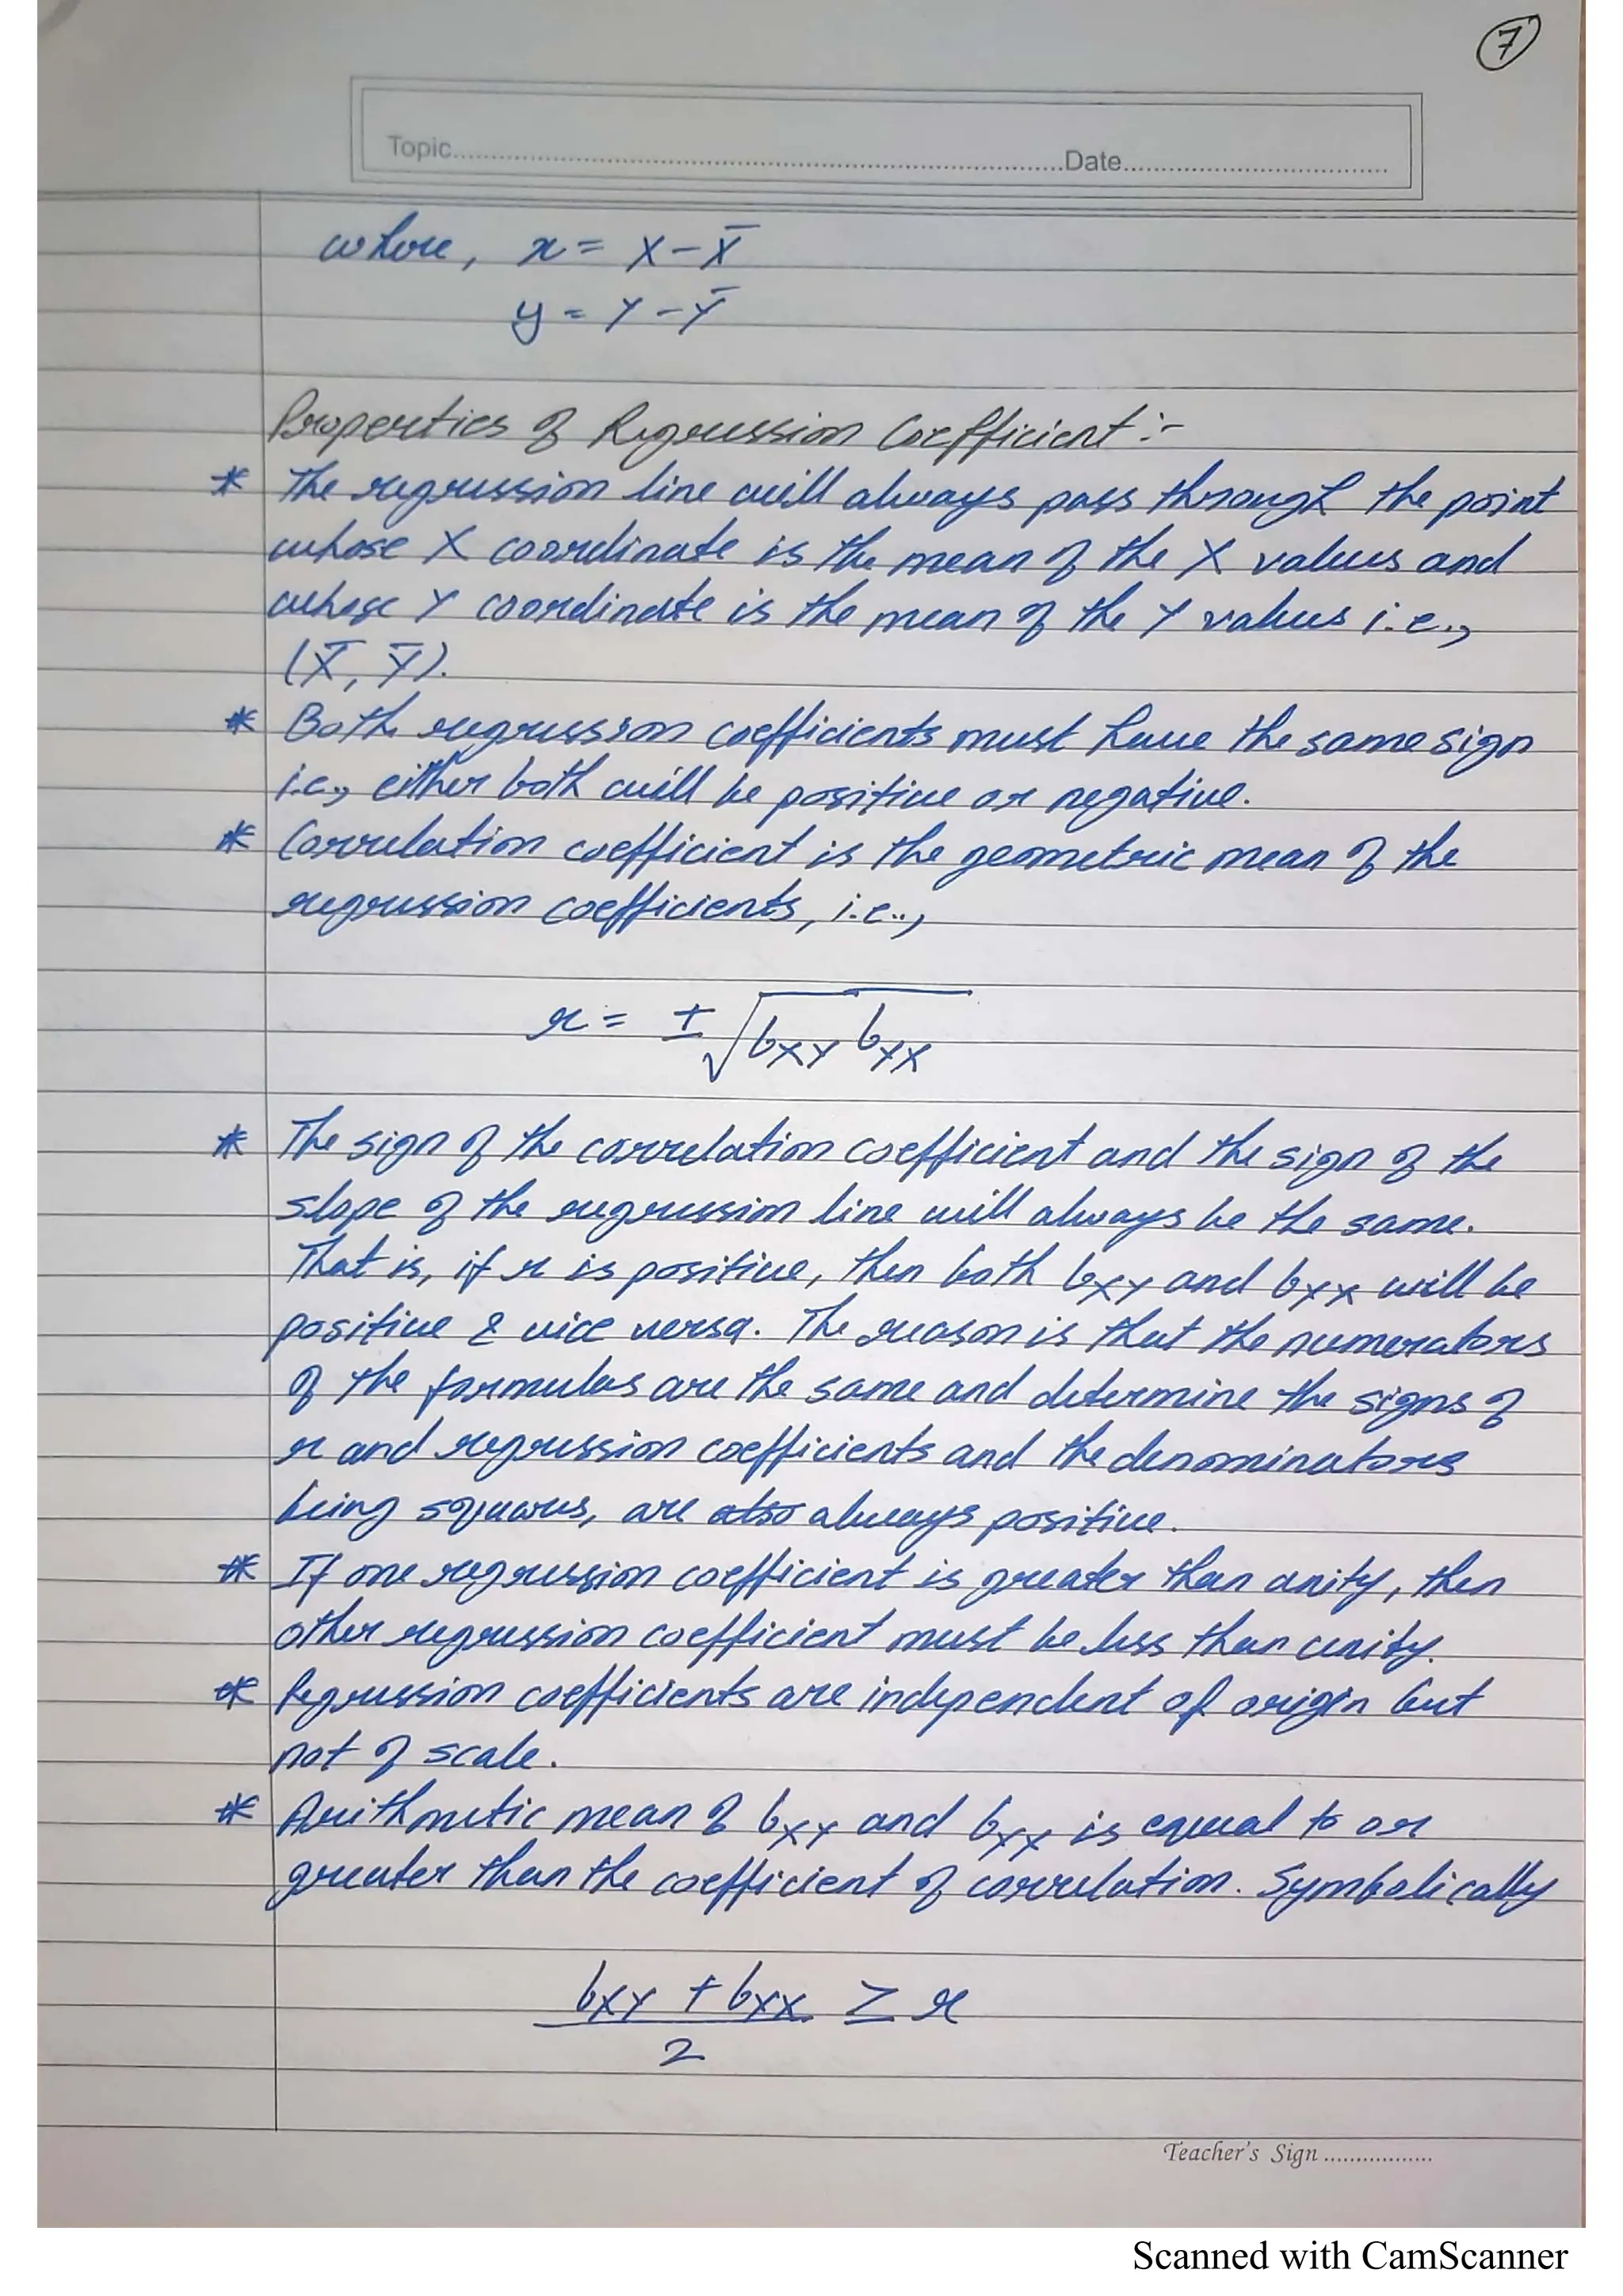 7
Topic.....Date.....
where, x = X - X̄
y = Y - Ȳ
Properties of Regression Coefficient :-
* The regression line will always pass through the point
whose X coordinate is the mean of the X values and
whose Y coordinate is the mean of the Y values i.e.,
(X̄, Ȳ).
* Both regression coefficients must have the same sign
i.e., either both will be positive or negative.
* Correlation coefficient is the geometric mean of the
regression coefficients, i.e.,
r = ± √(bXY bYX)
* The sign of the correlation coefficient and the sign of the
slope of the regression line will always be the same.
That is, if r is positive, then both bXY and bYX will be
positive & vice versa. The reason is that the numerators
of the formulas are the same and determine the signs of
r and regression coefficients and the denominators
being squares, are also always positive.
* If one regression coefficient is greater than unity, then
other regression coefficient must be less than unity.
* Regression coefficients are independent of origin but
not of scale.
* Arithmetic mean of bXY and bYX is equal to or
greater than the coefficient of correlation. Symbolically
bXY + bYX ≥ r
2
Teacher's Sign ..................
Scanned with CamScanner